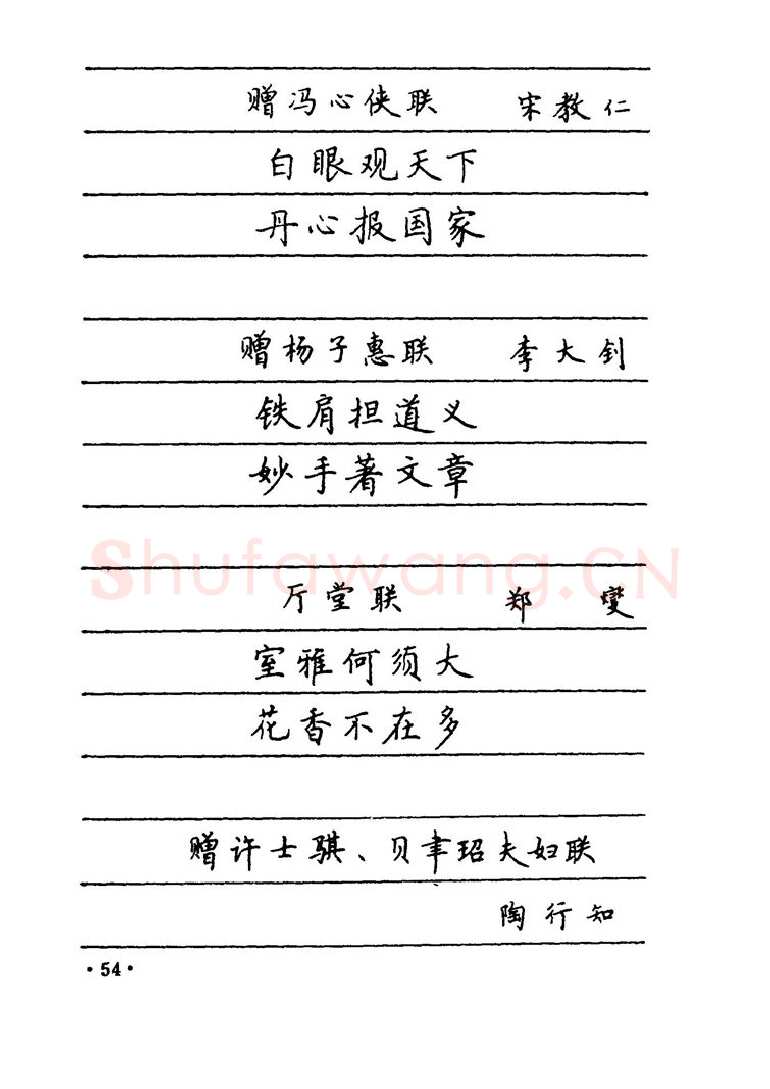 赠冯心侠联 宋教仁
白眼观天下
丹心报国家
赠杨子惠联 李大钊
铁肩担道义
妙手著文章
Shufawang.CN
厅堂联 郑燮
室雅何须大
花香不在多
赠许士骐、贝聿玿夫妇联
陶行知
·54·